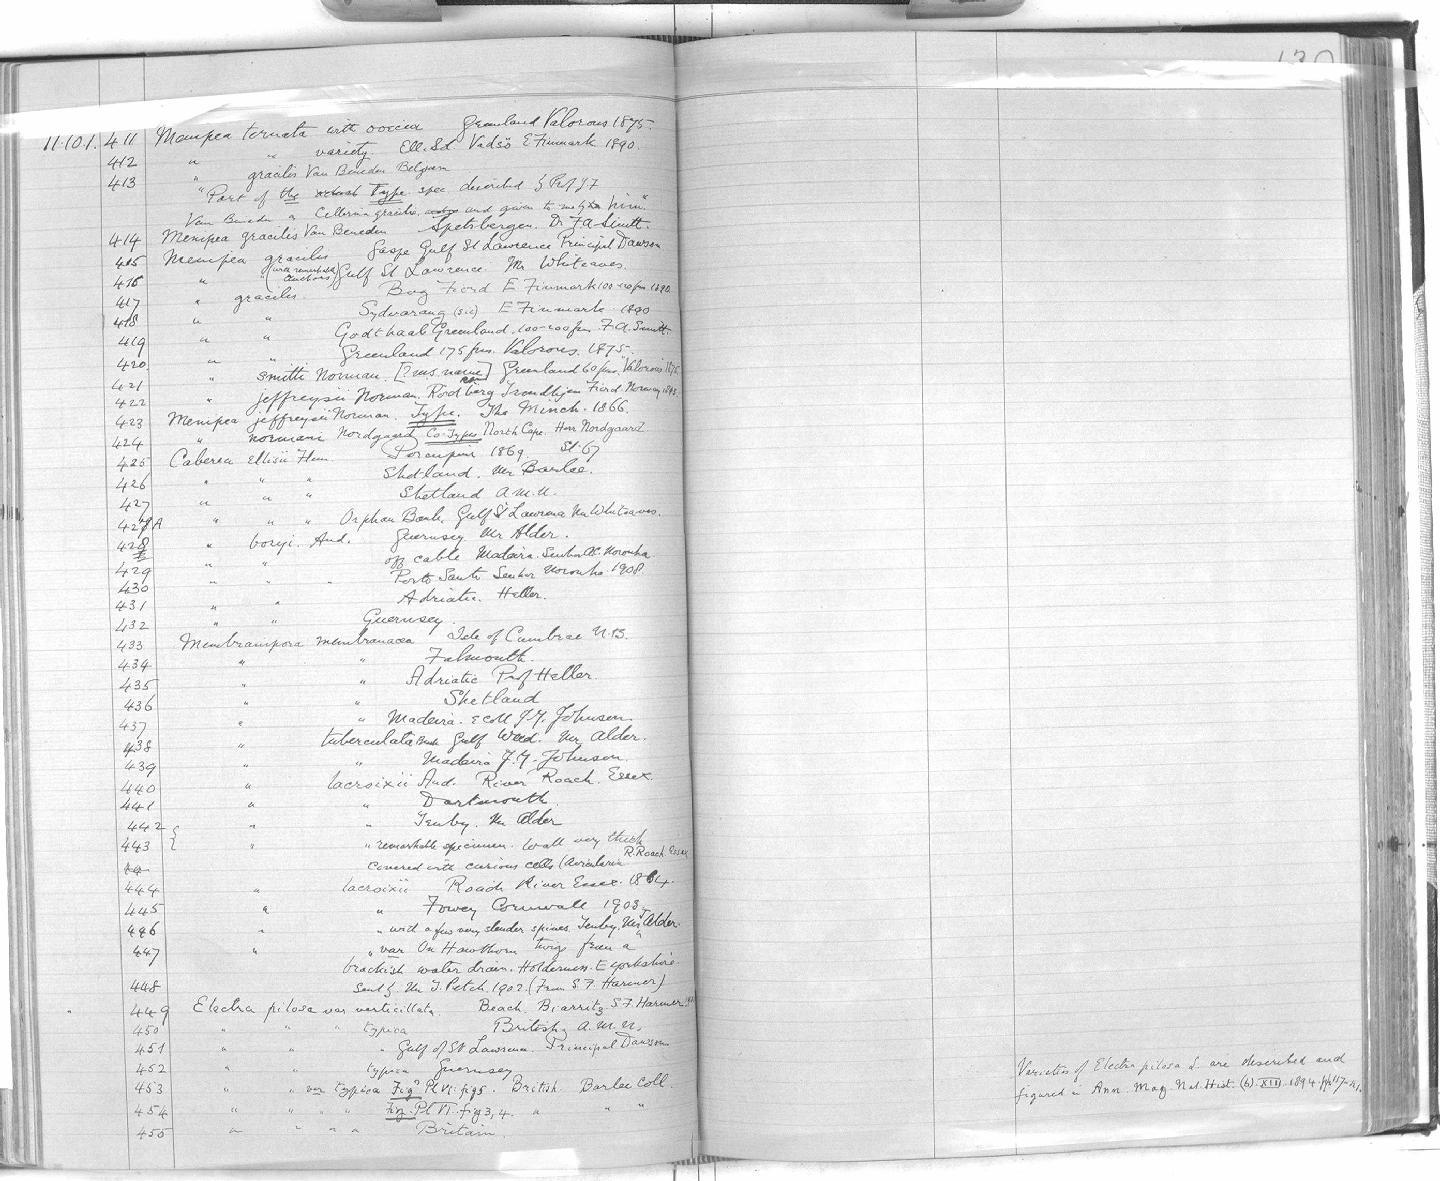 130
11.10.1.411 Menipea ternata with ooecia Greenland Valorous 1875.
412 " " variety. Ell. Sd Vadsö E Finmark 1890.
413 " gracilis Van Beneden Belgium
"Part of the Type spec described by Prof
Van Beneden as Cellarina gracilis, and given to me by him"
414 Menipea gracilis Van Beneden Spetsbergen. Dr F A Smitt.
415 Menipea gracilis Gaspe Gulf St Lawrence Principal Dawson
416 " " (with remarkable anchors) Gulf St Lawrence Mr Whiteaves.
417 " gracilis Bog Fiord E Finmark 100-120 fms. 1890.
418 " " Sydvarang (sic) E Finmark 1890
419 " " Godthaab Greenland. 100-200 fms. F A Smitt.
420 " " Greenland 175 fms. Valorous. 1875.
421 " smitti Norman. [? ms. name] Greenland 60 fms. "Valorous" 1875
422 " jeffreysii Norman. Rodberg Trondhjem Fiord Norway 1893
423 Menipea jeffreysii Norman. Type. The Minch. 1866.
424 " normani Nordgaard Co-Types North Cape. Herr Nordgaard
425 Caberea Ellisii Flem Porcupine 1869. St. 67
426 " " " Shetland. Mr Barlee.
427 " " " Shetland A.M.N.
427A " " " Orphan Bank. Gulf St Lawrence Mr Whiteaves.
428 " boryi. Aud. Guernsey Mr Alder.
429 " " off cable Madeira. Senhor A.C. Noronha
430 " " " Porto Santo Senhor Noronha 1908.
431 " " Adriatic. Heller.
432 " " Guernsey.
433 Membranipora membranacea Isle of Cumbrae N.B.
434 " " Falmouth.
435 " " Adriatic Prof Heller.
436 " " Shetland
437 " " Madeira. e coll J.Y. Johnson.
438 " tuberculata Busk Gulf Weed. Mr Alder.
439 " " Madeira J.Y. Johnson.
440 " lacroixii Aud. River Roach. Essex
441 " " Dartmouth.
442 " " Tenby. Mr Alder
443 " " remarkable specimen. Wall very thick
R. Roach. Essex
covered with curious cells (Avicularia
444 " lacroixii Roach River Essex. 1864.
445 " " Fowey Cornwall 1903.
446 " " with a few very slender spines. Tenby. Mr Alder.
447 " " var On Hawthorn twigs from a
brackish water drain. Holderness. E Yorkshire
448 sent by Mr T. Petch. 1902. (From S. F. Harmer)
449 Electra pilosa var verticillata. Beach. Biarritz. S. F. Harmer
450 " " " typica British A.M.N.
451 " " " Gulf of St Lawrence. Principal Dawson
452 " " typica Guernsey
453 " " var typica Figd Pl VI. fig 5. British. Barlee Coll.
454 " " " " Fig. Pl VI. fig 3, 4. " " "
455 " " " " Britain.
Varieties of Electra pilosa L. are described and
figured in Ann Mag Nat. Hist. (6) XIII. 1894.